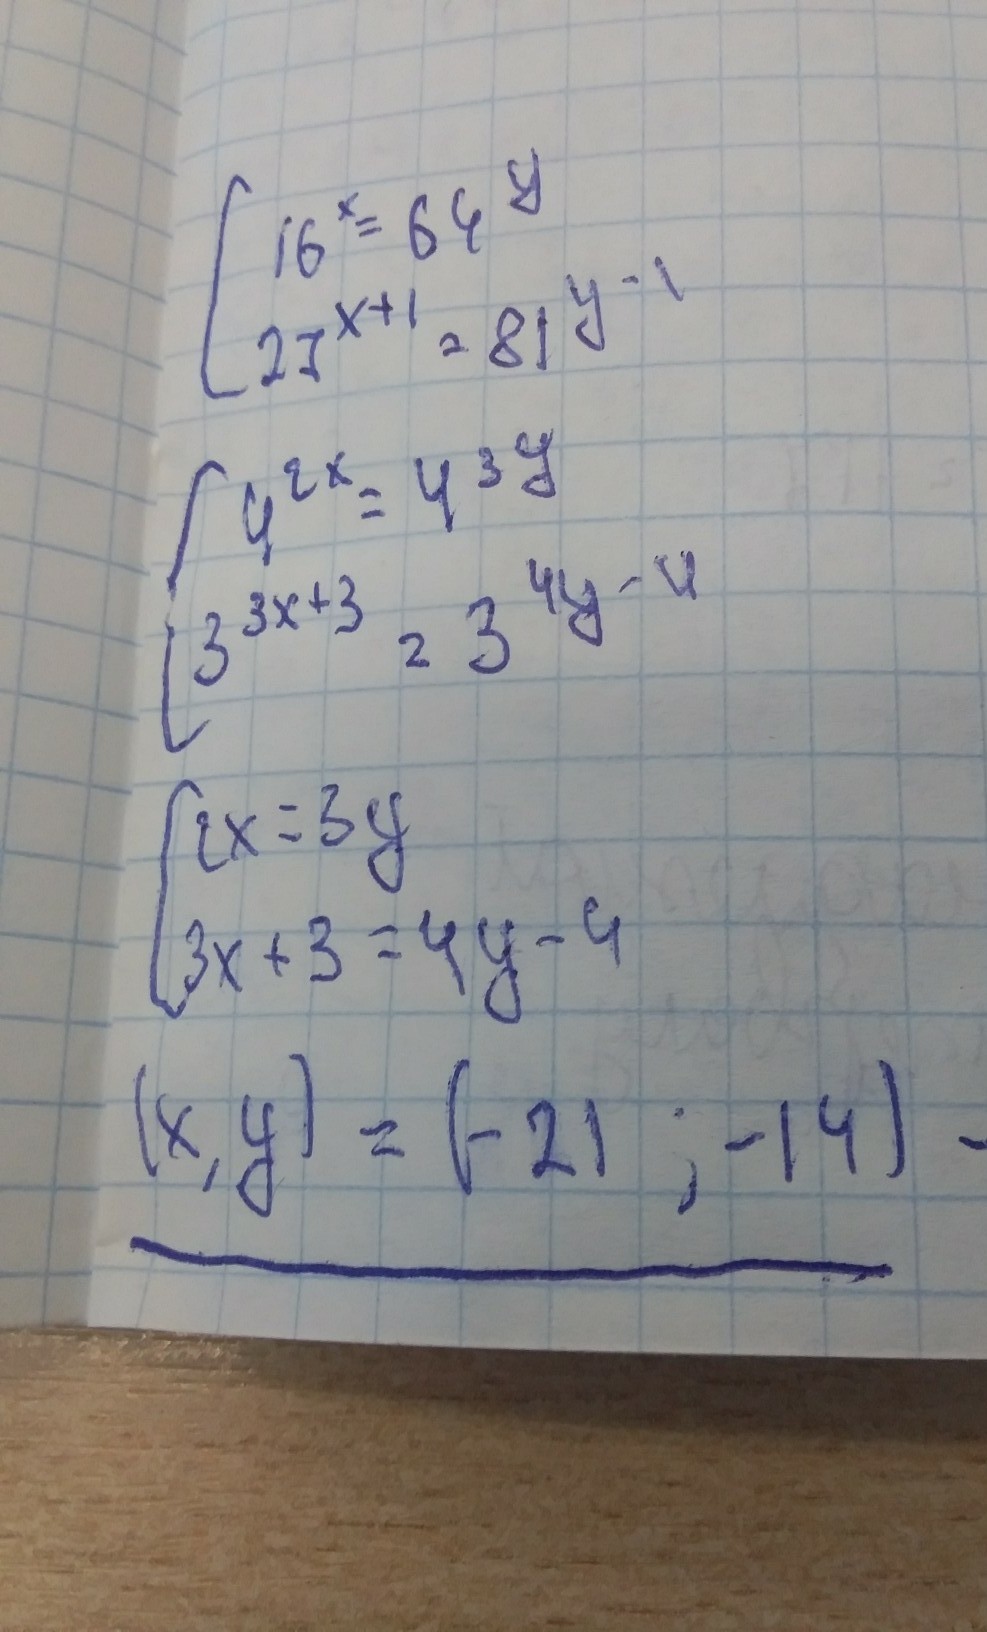 16^x = 64^y
27^{x+1} = 81^{y-1}
4^{2x} = 4^{3y}
3^{3x+3} = 3^{4y-4}
2x = 3y
3x + 3 = 4y - 4
(x, y) = (-21 ; -14) -